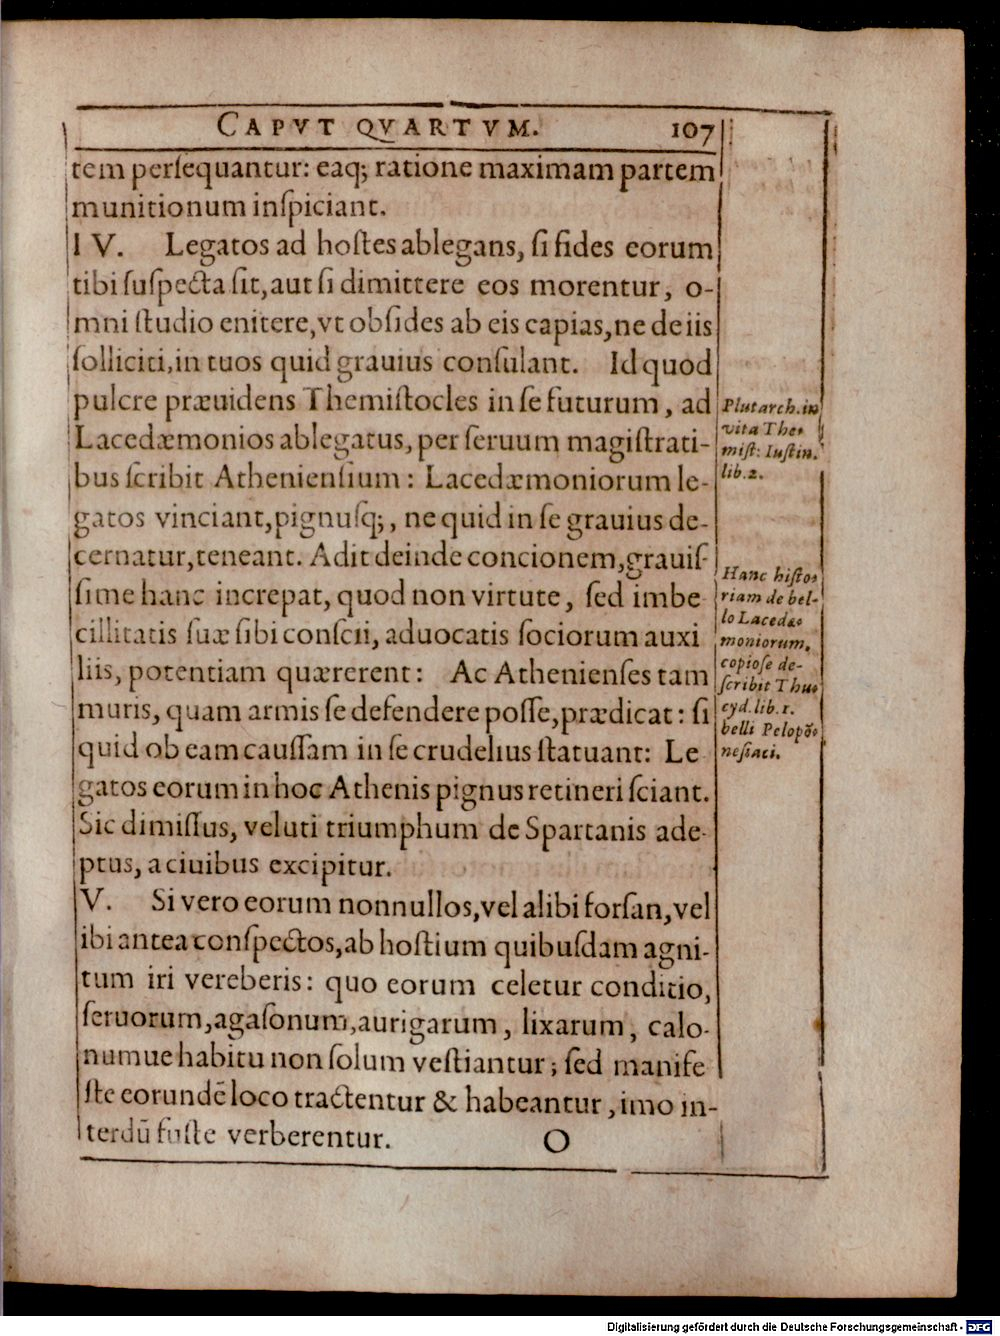 CAPVT QVARTVM. 107
tem perſequantur: eaq; ratione maximam partem
munitionum inſpiciant.
IV. Legatos ad hoſtes ablegans, ſi fides eorum
tibi ſuſpecta ſit, aut ſi dimittere eos morentur, o-
mni ſtudio enitere, vt obſides ab eis capias, ne de iis
ſolliciti, in tuos quid grauius conſulant. Id quod
pulcre præuidens Themiſtocles in ſe futurum, ad
Lacedæmonios ablegatus, per ſeruum magiſtrati-
bus ſcribit Athenienſium: Lacedæmoniorum le-
gatos vinciant, pignuſq;, ne quid in ſe grauius de-
cernatur, teneant. Adit deinde concionem, grauiſ-
ſime hanc increpat, quod non virtute, ſed imbe
cillitatis ſuæ ſibi conſcii, aduocatis ſociorum auxi
liis, potentiam quærerent: Ac Athenienſes tam
muris, quam armis ſe defendere poſſe, prædicat: ſi
quid ob eam cauſſam in ſe crudelius ſtatuant: Le
gatos eorum in hoc Athenis pignus retineri ſciant.
Sic dimiſſus, veluti triumphum de Spartanis ade-
ptus, a ciuibus excipitur.
V. Si vero eorum nonnullos, vel alibi forſan, vel
ibi antea conſpectos, ab hoſtium quibuſdam agni-
tum iri vereberis: quo eorum celetur conditio,
ſeruorum, agaſonum, aurigarum, lixarum, calo-
numue habitu non ſolum veſtiantur; ſed manife
ſte eorundē loco tractentur & habeantur, imo in-
terdū fuſte verberentur. O
Plutarch. in
vita The-
miſt: Iuſtin.
lib. 2.
Hanc hiſto-
riam de bel-
lo Lacedæ-
moniorum,
copioſe de-
ſcribit Thu-
cyd. lib. 1.
belli Pelopō-
neſiaci.
Digitalisierung gefördert durch die Deutsche Forschungsgemeinschaft - DFG